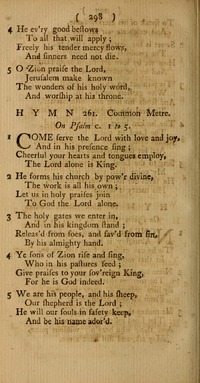 ( 298 )
4 He ev'ry good bestows
To all that will apply ;
Freely his tender mercy flows,
And sinners need not die.
5 O Zion praise the Lord,
Jerusalem make known
The wonders of his holy word,
And worship at his throne.
HYMN 261. Common Metre.
On Psalm c. 1 to 5.
1 COME serve the Lord with love and joy,
And in his presence sing ;
Cheerful your hearts and tongues employ,
The Lord alone is King.
2 He forms his church by pow'r divine,
The work is all his own ;
Let us in holy praises join
To God the Lord alone.
3 The holy gates we enter in,
And in his kingdom stand ;
Releas'd from foes, and sav'd from sin,
By his almighty hand.
4 Ye sons of Zion rise and sing,
Who in his pastures feed ;
Give praises to your sov'reign King,
For he is God indeed.
5 We are his people, and his sheep,
Our shepherd is the Lord ;
He will our souls in safety keep,
And be his name ador'd.